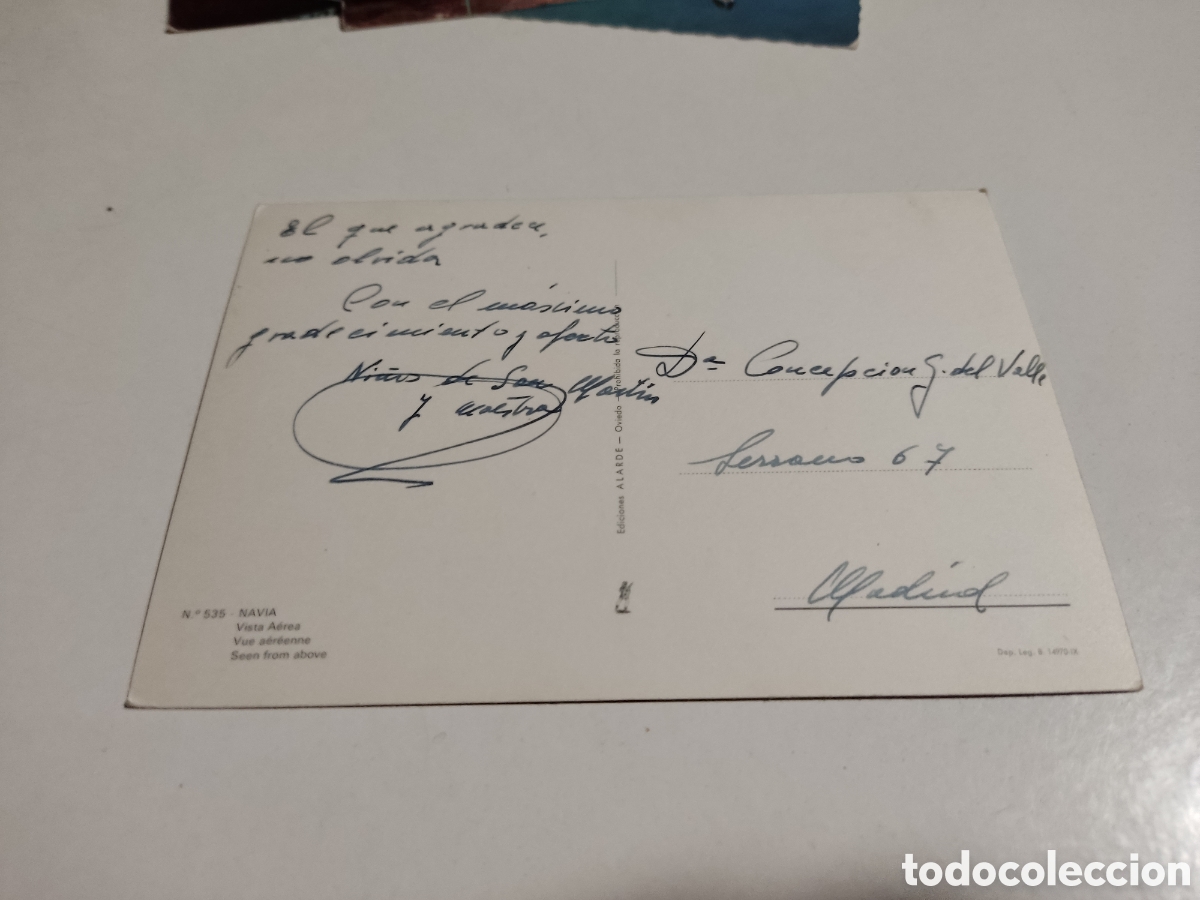 El que agradece,
no olvida
Con el máximo
gradecimiento y afecto
Niños de San Martin
y maestra
Dª Concepcion G. del Valle
Serrano 67
Madrid
Ediciones ALARDE — Oviedo — Prohibida la reproducción
N.º 535 - NAVIA
Vista Aérea
Vue aéréenne
Seen from above
Dep. Leg. B.
todocoleccion